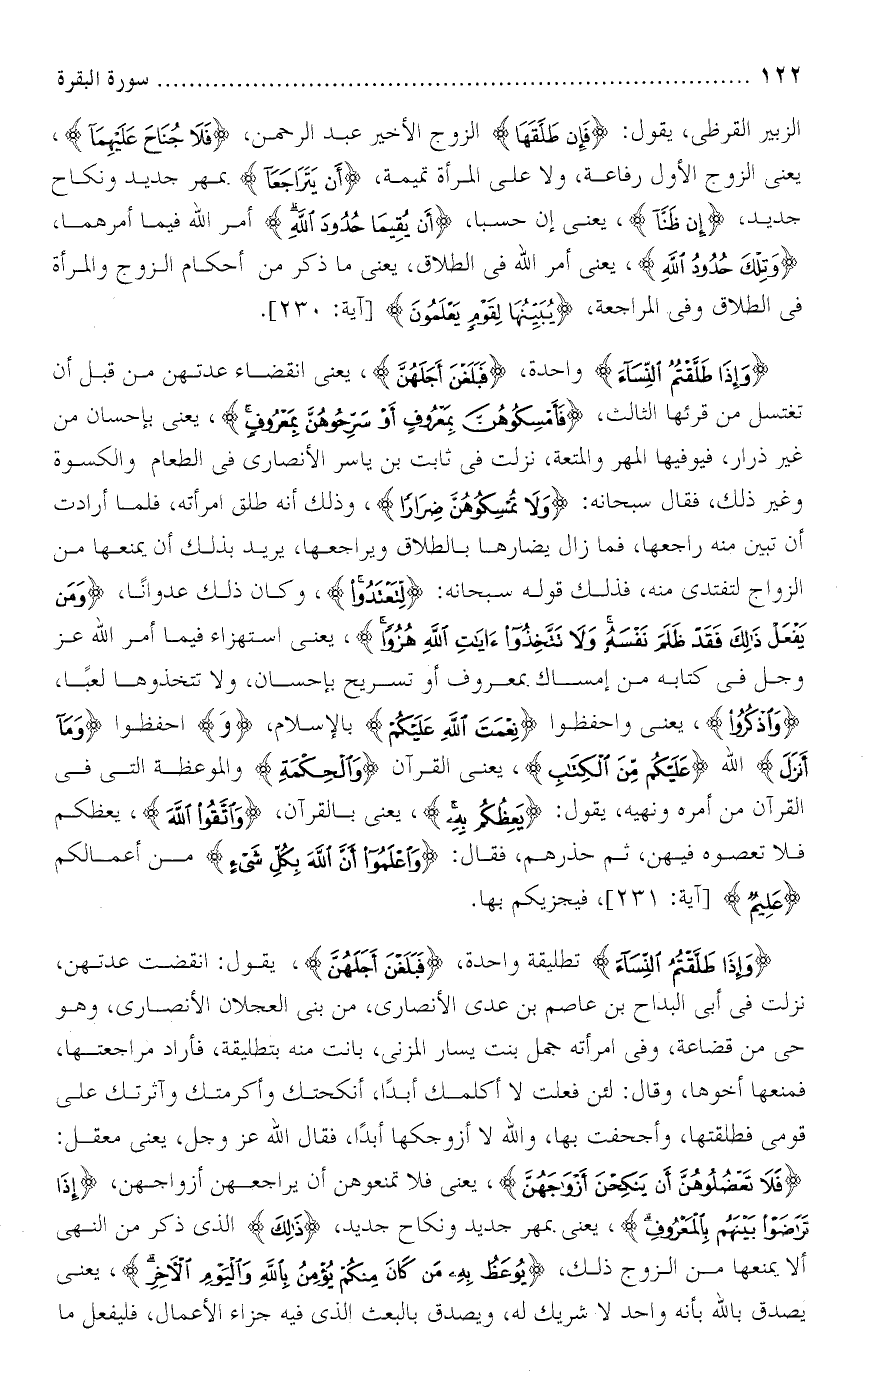 ١٢٢ ........................................................................... سورة البقرة
الزبير القرظى، يقول: ﴿فَإِن طَلَّقَهَا﴾ الزوج الأخير عبد الرحمن، ﴿فَلَا جُنَاحَ عَلَيْهِمَآ﴾ ،
يعنى الزوج الأول رفاعة، ولا على المرأة تميمة، ﴿أَن يَتَرَاجَعَآ﴾ بمهر جديد ونكاح
جديد، ﴿إِن ظَنَّآ﴾ ، يعنى إن حسبا، ﴿أَن يُقِيمَا حُدُودَ ٱللَّهِۗ﴾ أمر الله فيما أمرهما،
﴿وَتِلْكَ حُدُودُ ٱللَّهِ﴾ ، يعنى أمر الله فى الطلاق، يعنى ما ذكر من أحكام الزوج والمرأة
فى الطلاق وفى المراجعة، ﴿يُبَيِّنُهَا لِقَوْمٍ يَعْلَمُونَ﴾ [آية: ٢٣٠].
﴿وَإِذَا طَلَّقْتُمُ ٱلنِّسَآءَ﴾ واحدة، ﴿فَبَلَغْنَ أَجَلَهُنَّ﴾ ، يعنى انقضاء عدتهن من قبل أن
تغتسل من قرئها الثالث، ﴿فَأَمْسِكُوهُنَّ بِمَعْرُوفٍ أَوْ سَرِّحُوهُنَّ بِمَعْرُوفٍۚ﴾ ، يعنى بإحسان من
غير ذرار، فيوفيها المهر والمتعة، نزلت فى ثابت بن ياسر الأنصارى فى الطعام والكسوة
وغير ذلك، فقال سبحانه: ﴿وَلَا تُمْسِكُوهُنَّ ضِرَارًا﴾ ، وذلك أنه طلق امرأته، فلما أرادت
أن تبين منه راجعها، فما زال يضارها بالطلاق ويراجعها، يريد بذلك أن يمنعها من
الزواج لتفتدى منه، فذلك قوله سبحانه: ﴿لِّتَعْتَدُوا۟ۚ﴾ ، وكان ذلك عدوانًا، ﴿وَمَن
يَفْعَلْ ذَٰلِكَ فَقَدْ ظَلَمَ نَفْسَهُۥۚ وَلَا تَتَّخِذُوٓا۟ ءَايَٰتِ ٱللَّهِ هُزُوًاۚ﴾ ، يعنى استهزاء فيما أمر الله عز
وجل فى كتابه من إمساك بمعروف أو تسريح بإحسان، ولا تتخذوها لعبًا،
﴿وَٱذْكُرُوا۟﴾ ، يعنى واحفظوا ﴿نِعْمَتَ ٱللَّهِ عَلَيْكُمْ﴾ بالإسلام، ﴿وَ﴾ احفظوا ﴿وَمَآ
أَنزَلَ﴾ الله ﴿عَلَيْكُم مِّنَ ٱلْكِتَٰبِ﴾ ، يعنى القرآن ﴿وَٱلْحِكْمَةِ﴾ والموعظة التى فى
القرآن من أمره ونهيه، يقول: ﴿يَعِظُكُم بِهِۦۚ﴾ ، يعنى بالقرآن، ﴿وَٱتَّقُوا۟ ٱللَّهَ﴾ ، يعظكم
فلا تعصوه فيهن، ثم حذرهم، فقال: ﴿وَٱعْلَمُوٓا۟ أَنَّ ٱللَّهَ بِكُلِّ شَىْءٍ﴾ من أعمالكم
﴿عَلِيمٌ﴾ [آية: ٢٣١]، فيجزيكم بها.
﴿وَإِذَا طَلَّقْتُمُ ٱلنِّسَآءَ﴾ تطليقة واحدة، ﴿فَبَلَغْنَ أَجَلَهُنَّ﴾ ، يقول: انقضت عدتهن،
نزلت فى أبى البداح بن عاصم بن عدى الأنصارى، من بنى العجلان الأنصارى، وهو
حى من قضاعة، وفى امرأته جمل بنت يسار المزنى، بانت منه بتطليقة، فأراد مراجعتها،
فمنعها أخوها، وقال: لئن فعلت لا أكلمك أبدًا، أنكحتك وأكرمتك وآثرتك على
قومى فطلقتها، وأجحفت بها، والله لا أزوجكها أبدًا، فقال الله عز وجل، يعنى معقل:
﴿فَلَا تَعْضُلُوهُنَّ أَن يَنكِحْنَ أَزْوَٰجَهُنَّ﴾ ، يعنى فلا تمنعوهن أن يراجعهن أزواجهن، ﴿إِذَا
تَرَٰضَوْا۟ بَيْنَهُم بِٱلْمَعْرُوفِۗ﴾ ، يعنى بمهر جديد ونكاح جديد، ﴿ذَٰلِكَ﴾ الذى ذكر من النهى
ألا يمنعها من الزوج ذلك، ﴿يُوعَظُ بِهِۦ مَن كَانَ مِنكُمْ يُؤْمِنُ بِٱللَّهِ وَٱلْيَوْمِ ٱلْأَخِرِۗ﴾ ، يعنى
يصدق بالله بأنه واحد لا شريك له، ويصدق بالبعث الذى فيه جزاء الأعمال، فليفعل ما